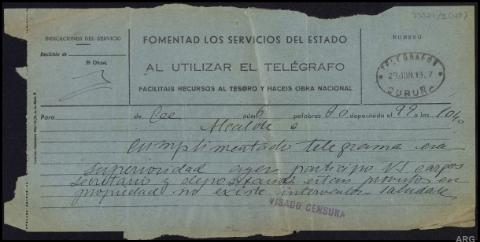 INDICACIONES DEL SERVICIO
Recibido de
El Oficial,
FOMENTAD LOS SERVICIOS DEL ESTADO
AL UTILIZAR EL TELÉGRAFO
FACILITAIS RECURSOS AL TESORO Y HACEIS OBRA NACIONAL
NUMERO
TELEGRAFOS
CORUÑA
Para de Cee núm 6 palabras 20 depositado el 22 a las 1040
Alcalde a
cumplimentado telegrama esa
superioridad ayer participo V.I. cargos
secretario y depositario están provistos en
propiedad no existe interventor salúdale
VISADO CENSURA
ARG